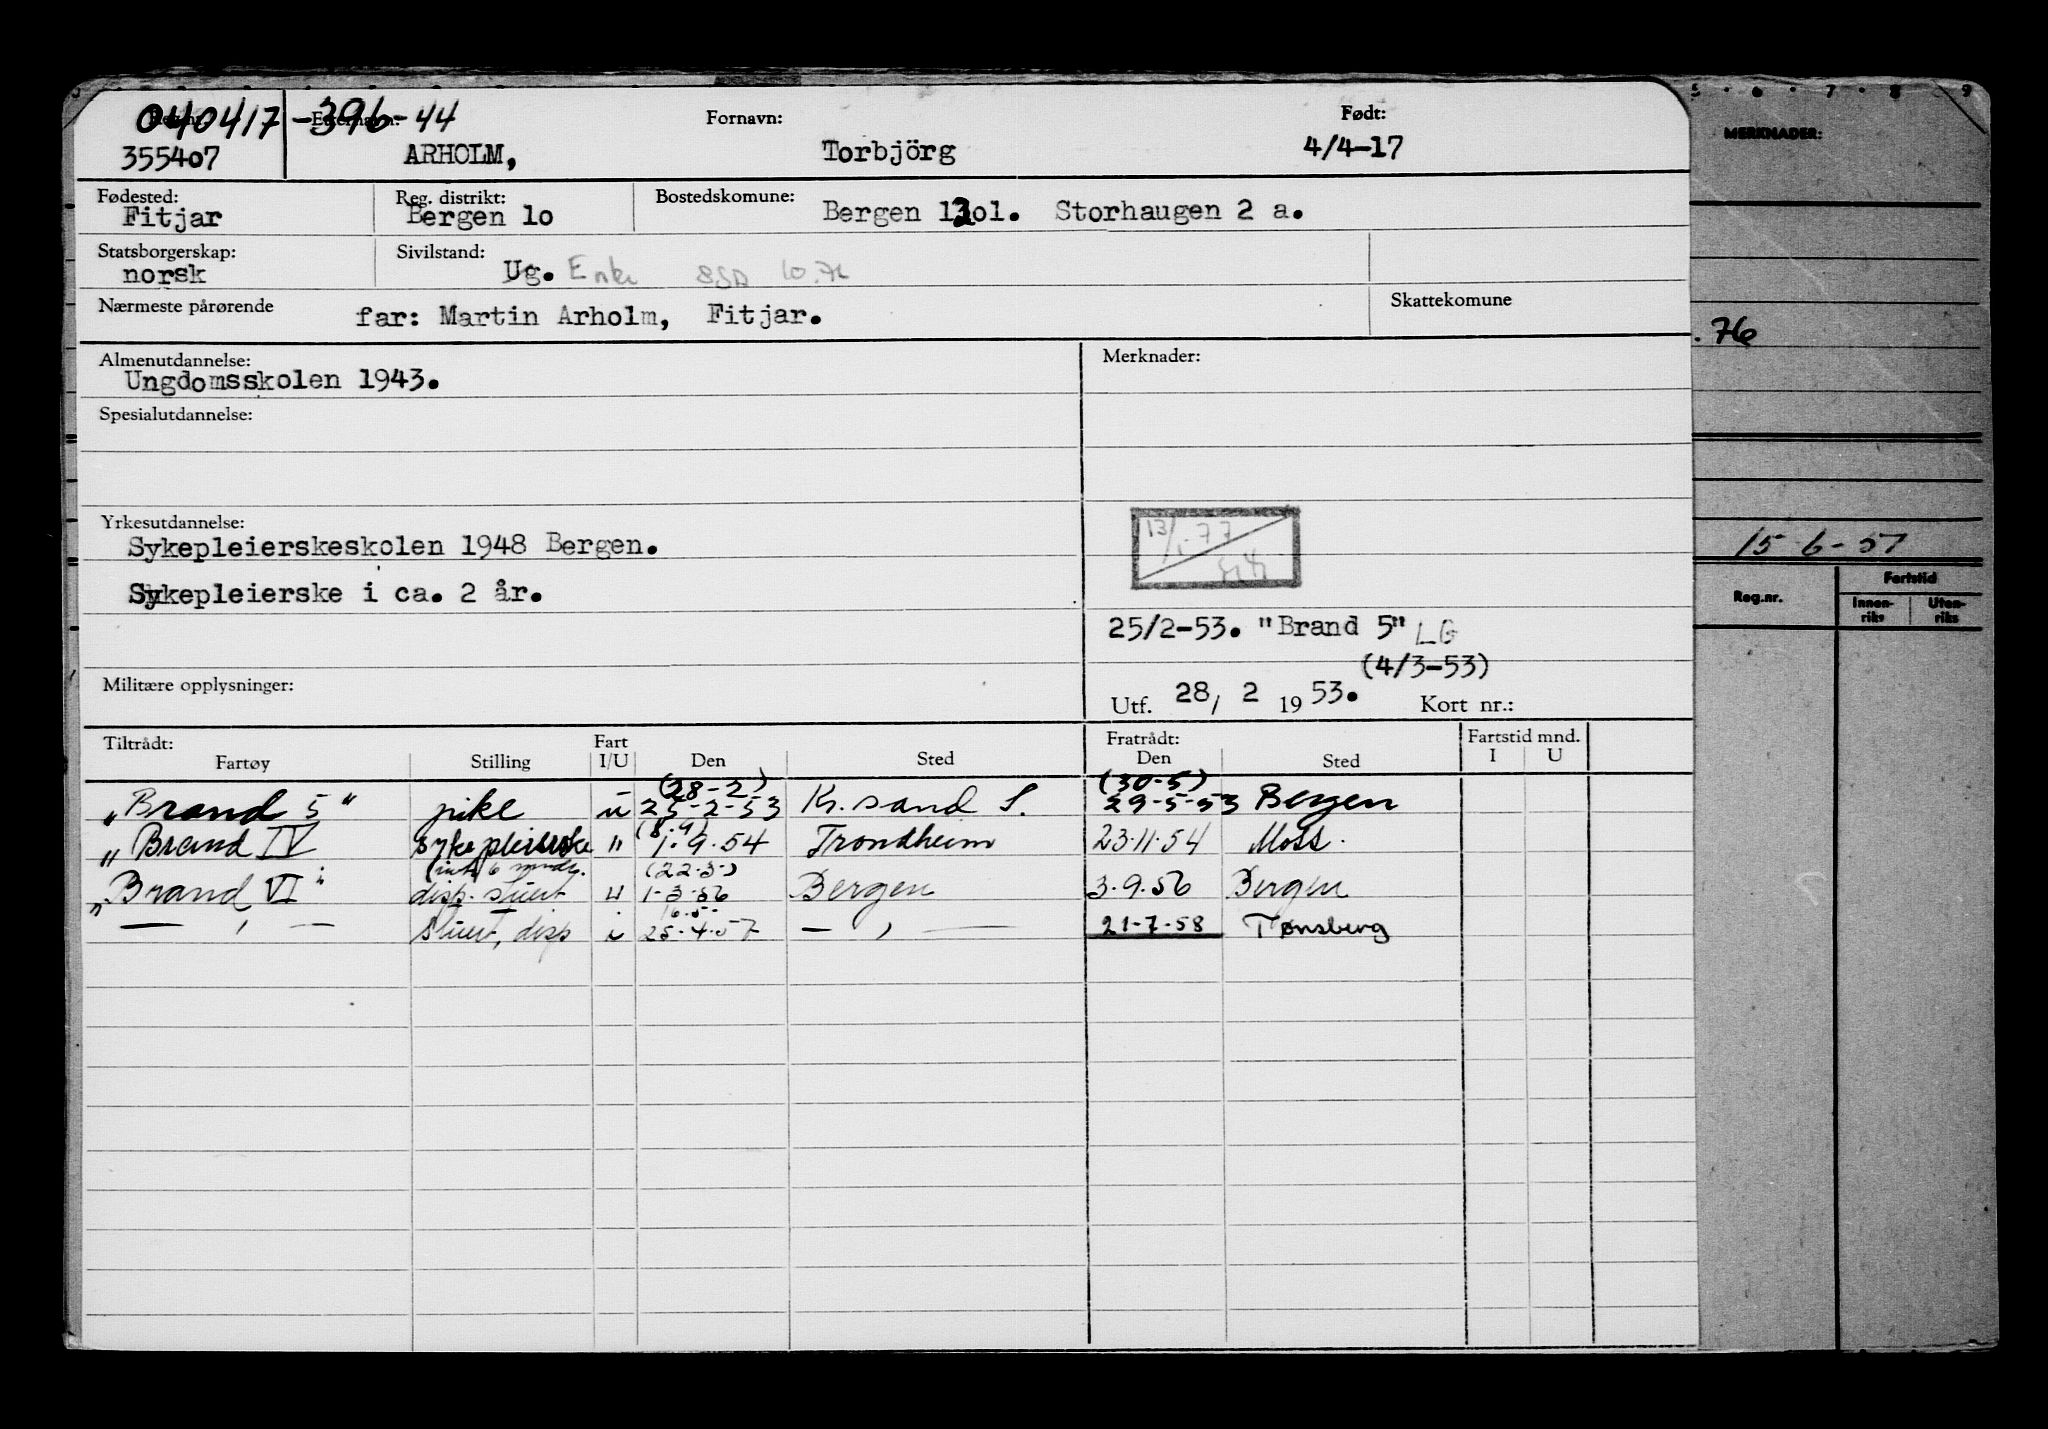 040417-396-44
Reg.nr. Etternavn: Fornavn: Født:
355407 ARHOLM, Torbjörg 4/4-17
Fødested: Reg. distrikt: Bostedskomune:
Fitjar Bergen 1o Bergen 13o1. Storhaugen 2 a.
Statsborgerskap: Sivilstand:
norsk Ug. Enke SSD 10.76
Nærmeste pårørende far: Martin Arholm, Fitjar. Skattekomune
Almenutdannelse: Merknader:
Ungdomsskolen 1943.
Spesialutdannelse:
Yrkesutdannelse:
Sykepleierskeskolen 1948 Bergen.
13/1-77
Sykepleierske i ca. 2 år.
25/2-53. "Brand 5" LG
(4/3-53)
Militære opplysninger: Utf. 28/ 2 1953. Kort nr.:
Tiltrådt: Fart Fratrådt: Fartstid mnd.
Fartøy Stilling I/U Den Sted Den Sted I U
(28-2) (30-5)
"Brand 5" pike u 25-2-53 Kr.sand S. 29-5-53 Bergen
(8.9)
"Brand IV sykepleierske " 1.9.54 Trondheim 23.11.54 Moss.
(22.3)
"Brand VI" disp. stuert u 1-3-56 Bergen 3.9.56 Bergen
— , — stuert, disp 25-4-57 — , — 21-7-58 Tønsberg
5 . 6 . 7 . 8 9
MERKNADER:
. 76
15-6-57
Reg.nr. Fartstid
Innen-riks Uten-riks